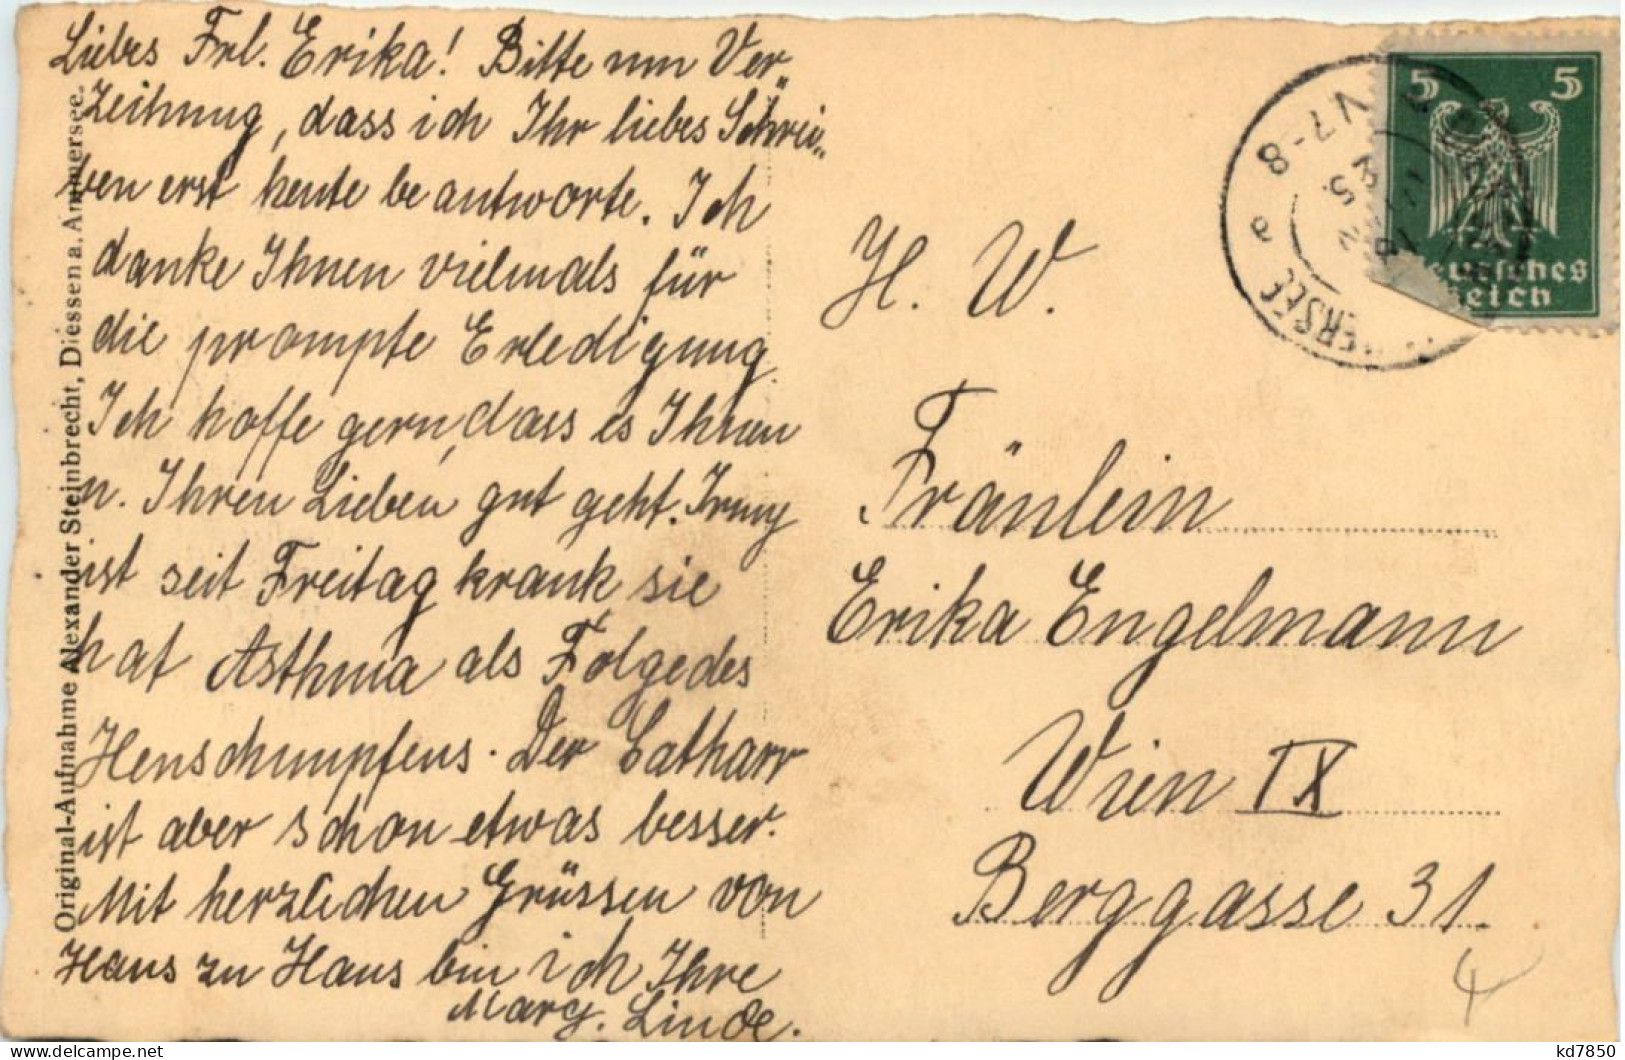 Liebes Frl. Erika! Bitte um Ver„
zeihung, dass ich Ihr liebes Schrei„
ben erst heute beantworte. Ich
danke Ihnen vielmals für
die prompte Erledigung.
Ich hoffe gern, dass es Ihnen
u. Ihren Lieben gut geht. Irmy
ist seit Freitag krank sie
hat Asthma als Folge des
Heuschnupfens. Der Catharr
ist aber schon etwas besser.
Mit herzlichen Grüssen von
Haus zu Haus bin ich Ihre
Marg. Linde.
Original-Aufnahme Alexander Steinbrecht, Diessen a. Ammersee.
H. W.
Fräulein
Erika Engelmann
Wien IX
Berggasse 31.
5 5
Deutsches
Reich
V 7-8
MERSEE
kd7850